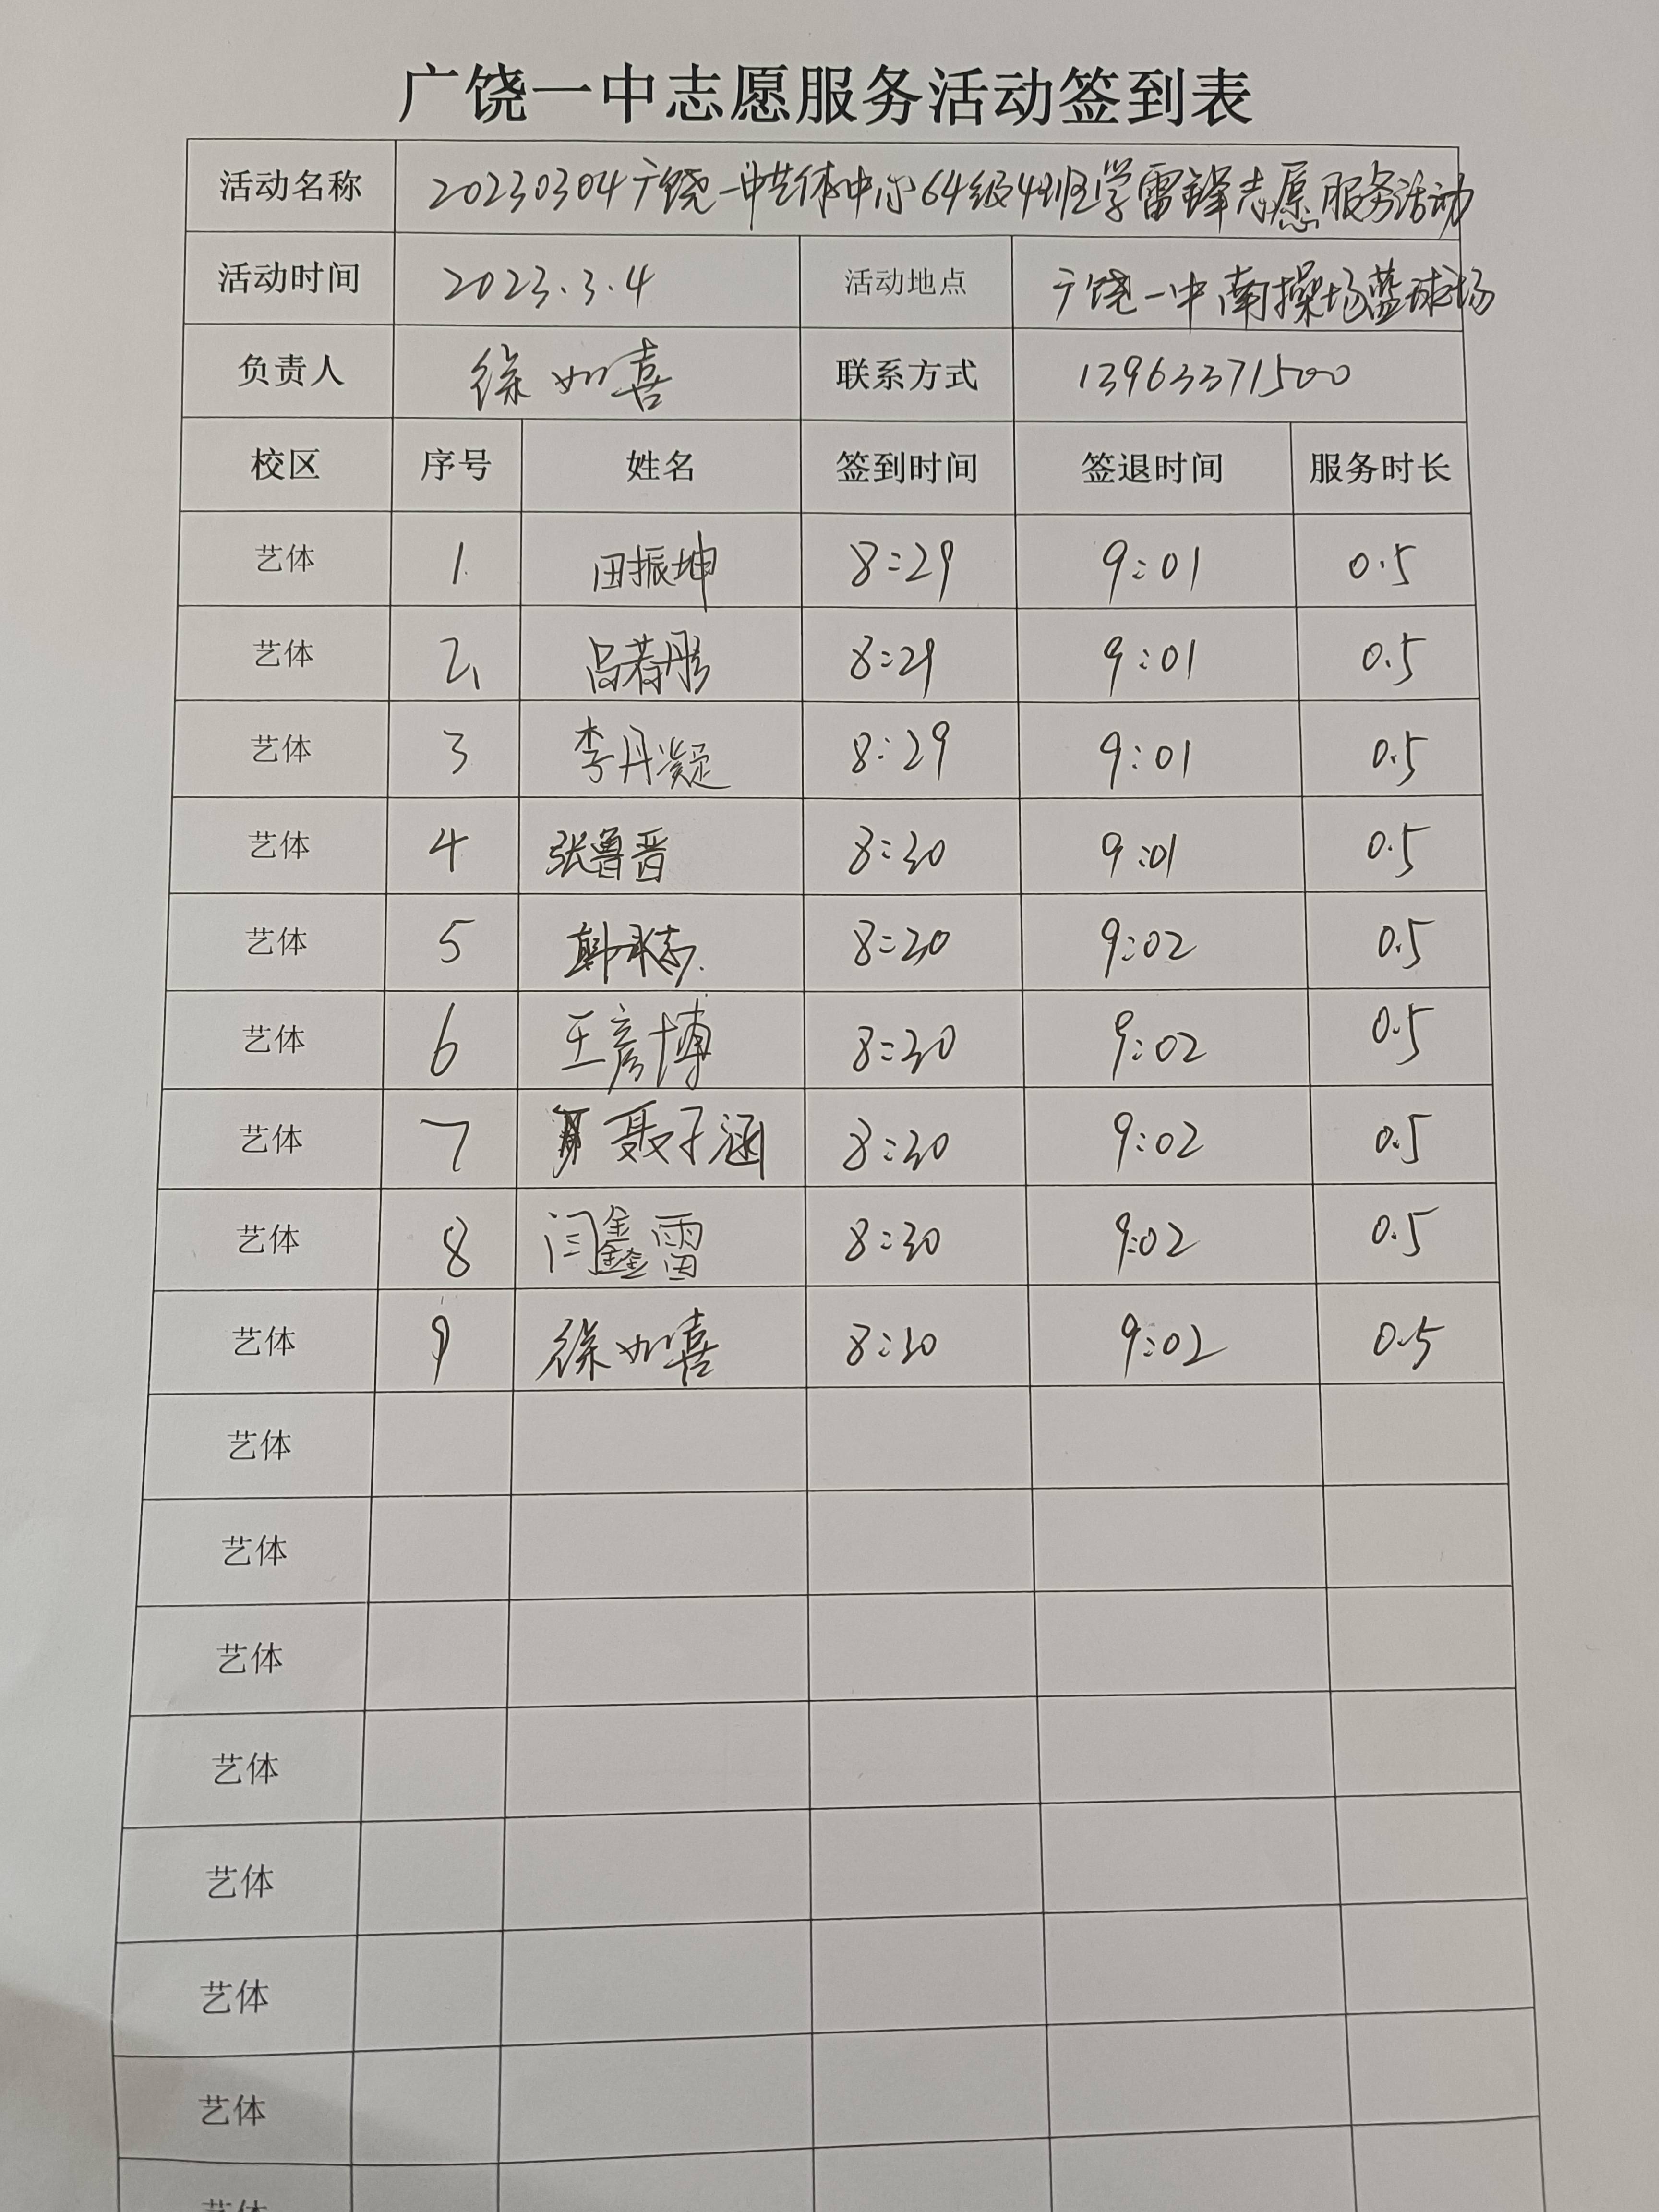 广饶一中志愿服务活动签到表
活动名称 20230304广饶一中艺体中心64级4班学雷锋志愿服务活动
活动时间 2023.3.4 活动地点 广饶一中南操场篮球场
负责人 徐如喜 联系方式 13963371500
校区 序号 姓名 签到时间 签退时间 服务时长
艺体 1 田振坤 8:29 9:01 0.5
艺体 2 吕若彤 8:29 9:01 0.5
艺体 3 李丹凝 8:29 9:01 0.5
艺体 4 张鲁晋 8:30 9:01 0.5
艺体 5 韩承志 8:30 9:02 0.5
艺体 6 王彦博 8:30 9:02 0.5
艺体 7 聂子涵 8:30 9:02 0.5
艺体 8 闫鑫雷 8:30 9:02 0.5
艺体 9 徐如喜 8:30 9:02 0.5
艺体
艺体
艺体
艺体
艺体
艺体
艺体
艺体